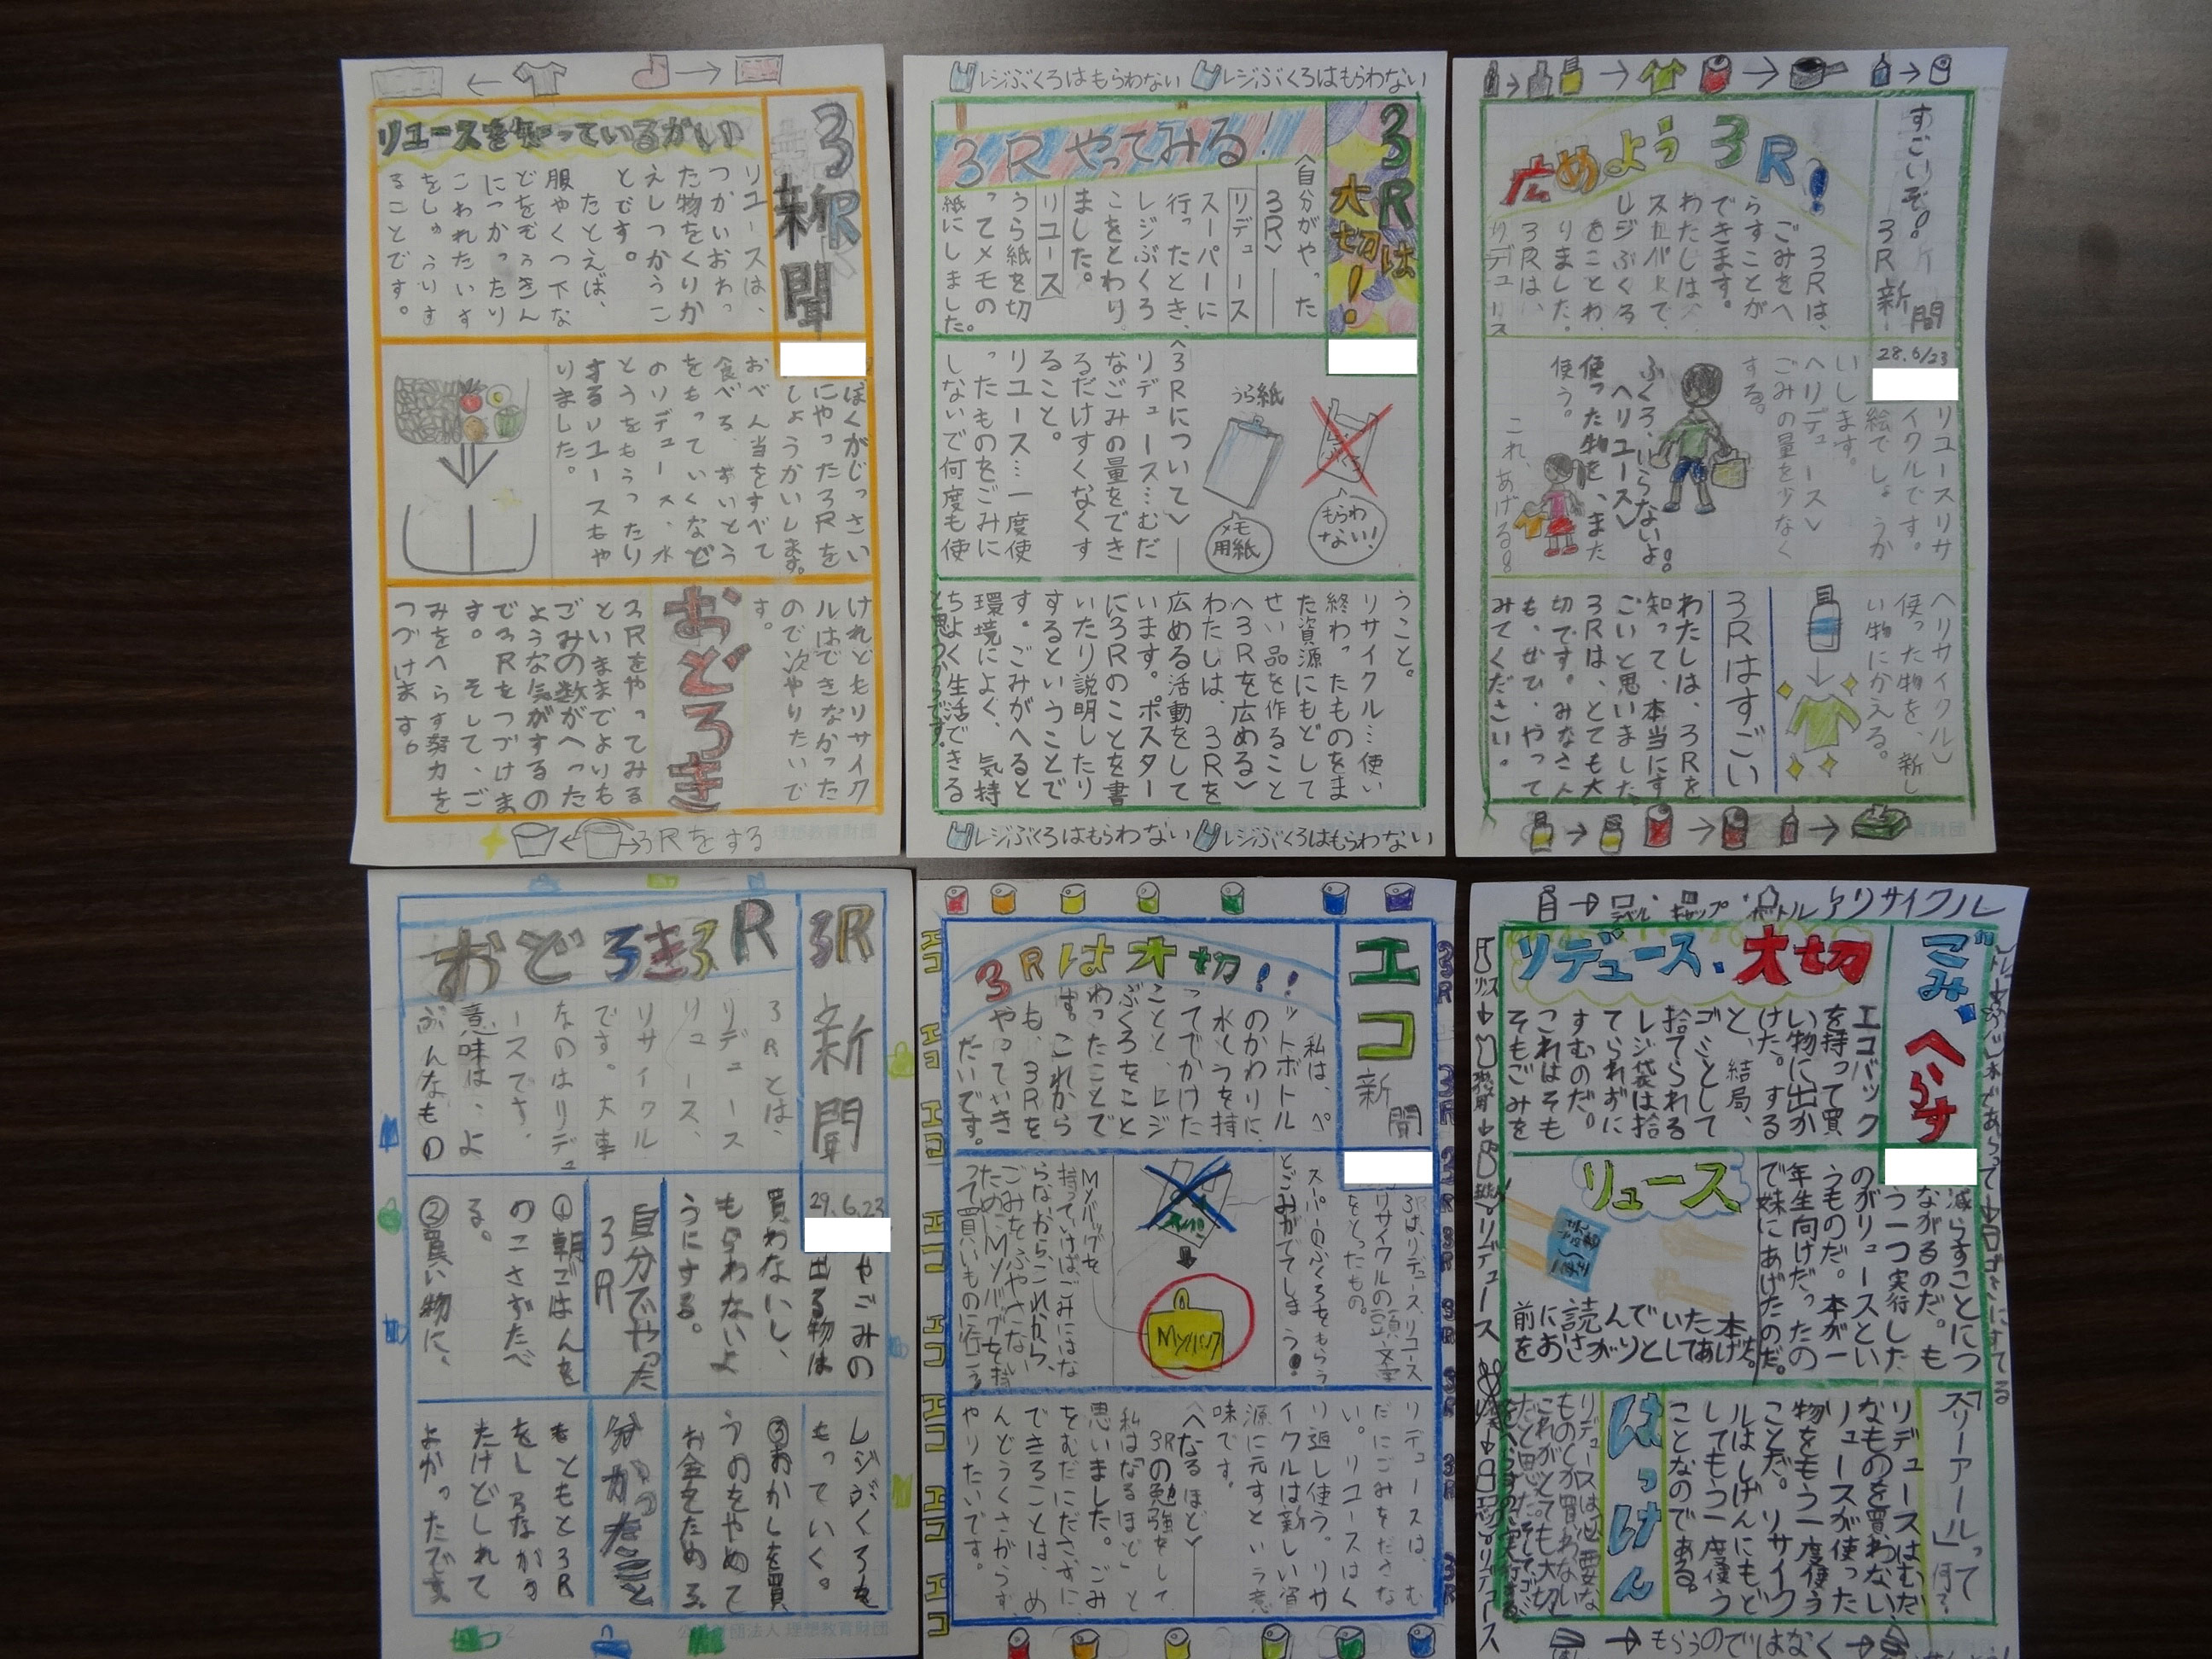 3R新聞
リユースを知っているかい
リユースは、
つかいおわっ
た物をくりか
えしつかうこ
とです。
たとえば、
服やくつ下な
どをぞうきん
につかったり
こわれたいす
をしゅうりす
ることです。
ぼくがじっさい
にやった3Rを
しょうかいします。
おべん当をすべて
食べる、すいとう
をもっていくなど
のリデュース、水
とうをもらったり
するリユースもや
りました。
けれどもリサイク
ルはできなかった
ので次やりたいで
す。
おどろき
3Rをやってみる
といままでよりも
ごみの数がへった
ような気がするの
で3Rをつづけま
す。そして、ご
みをへらす努力を
つづけます。
3Rをする
レジぶくろはもらわない
レジぶくろはもらわない
3Rは大切!。
3Rやってみる!
〈自分がやった
3R〉
リデュース
スーパーに
行ったとき、
レジぶくろ
をことわり
ました。
リユース
うら紙を切
ってメモの
紙にしました。
うら紙
メモ用紙
もらわない!
〈3Rについて〉
リデュース…むだ
なごみの量をでき
るだけすくなくす
ること。
リユース…一度使
ったものをごみに
しないで何度も使
うこと。
リサイクル…使い
終わったものをま
た資源にもどして
せい品を作ること
〈3Rを広める〉
わたしは、3Rを
広める活動をして
います。ポスター
に3Rのことを書
いたり説明したり
するということで
す。ごみがへると
環境によく、気持
ちよく生活できる
と思うからです。
レジぶくろはもらわない
レジぶくろはもらわない
すごいぞ。
3R新聞
28.6/23
広めよう3R!
3Rは、
ごみをへ
らすことが
できます。
わたしは、
スーパーで、
レジぶくろ
をことわ
りました。
3Rは、
リデュース
リユースリサ
イクルです。
絵でしょうか
いします。
〈リデュース〉
ごみの量を少なく
する。
ふくろ、いらないよ。
〈リユース〉
使った物を、また
使う。
これ、あげる。
〈リサイクル〉
使った物を、新し
い物にかえる。
3Rはすごい
わたしは、3Rを
知って、本当にす
ごいと思いました。
3Rは、とても大
切です。みなさん
も、ぜひ、やって
みてください。
3R新聞
29.6.23
おどろき3R
3Rとは、
リデュース
リユース、
リサイクル
です。大事
なのはリデュ
ースです。
意味は、よ
ぶんなもの
やごみの
出る物は
買わないし、
もらわないよ
うにする。
自分でやった
3R
①朝ごはんを
のこさずたべ
る。
②買い物に、
レジぶくろを
もっていく。
③おかしを買
うのをやめて
お金をためる。
分かったこと
もともと3R
をしらなかっ
たけどしれて
よかったです。
エコ新聞
3Rは大切!!
私は、ペ
ットボトル
のかわりに、
水とうを持
ってでかけた
ことと、レジ
ぶくろをこと
わったことで
す。これから
も、3Rを
やっていき
たいです。
3Rは、リデュース、リユース
リサイクルの頭文字
をとったもの。
スーパーのふくろをもらう
とごみがでてしまう!
Myバック
Myバックを
持っていけばごみにはな
らないから、これから、
ごみをふやさない
ためにMyバックを持
って買いものに行こう
リデュースは、む
だにごみをださな
い。リユースはく
り返し使う。リサ
イクルは新しい資
源に元すという意
味です。
〈なるほど〉
3Rの勉強をして
私は「なるほど」と
思いました。ごみ
をむだにださずに
できることは、め
んどうくさがらず、
やりたいです。
エコ
3R
ごみ、へらす
リデュース、大切
エコバック
を持って買
い物に出か
けた。する
と、結局、
ゴミとして
捨てられる
レジ袋は捨
てられずに
すむのだ。
これはそも
そもごみを
減らすことにつ
ながるのだ。も
う一つ実行した
のがリユースとい
うものだ。本が一
年生向けだったの
で妹にあげたのだ。
リユース
前に読んでいた本
をおさがりとしてあげた。
「スリーアール」って
何?
リデュースはむだ
なものを買わない、
リユースが使った
物をもう一度使う
ことだ。リサイク
ルはしげんにもど
してもう一度使う
ことなのである。
はっけん
リデュースは必要な
ものしか買わない
これがとても大切
だと思った。
ラベル・キャップ・ボトル
リサイクル
もらうのではなく